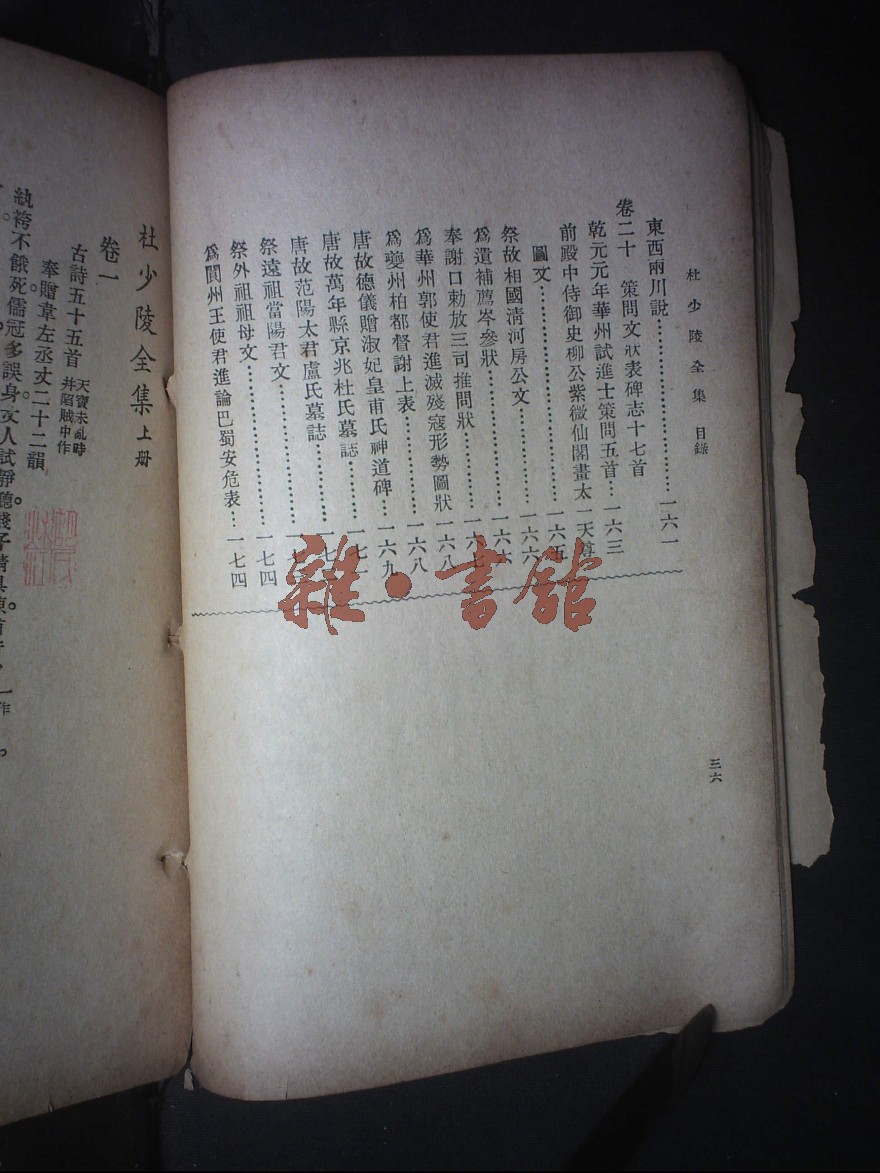 杜少陵全集 目錄
東西兩川說……一六一
卷二十 策問文狀表碑志十七首
乾元元年華州試進士策問五首…一六三
前殿中侍御史柳公紫微仙閣畫太一天尊
圖文……一六五
祭故相國淸河房公文……一六六
爲遺補薦岑參狀……一六七
奉謝口勅放三司推問狀……一六七
爲華州郭使君進滅殘寇形勢圖狀一六八
爲夔州柏都督謝上表……一六八
唐故德儀贈淑妃皇甫氏神道碑…一六九
唐故萬年縣京兆杜氏墓誌……一七
唐故范陽太君盧氏墓誌……一七
祭遠祖當陽君文……一七四
祭外祖祖母文……一七四
爲閬州王使君進論巴蜀安危表…一七四
三六
雜·書館
杜少陵全集上册
卷一
古詩五十五首 天寶未亂時
幷陷賊中作
奉贈韋左丞丈二十二韻
紈袴不餓死儒冠多誤身丈人試靜聽賤子請具陳